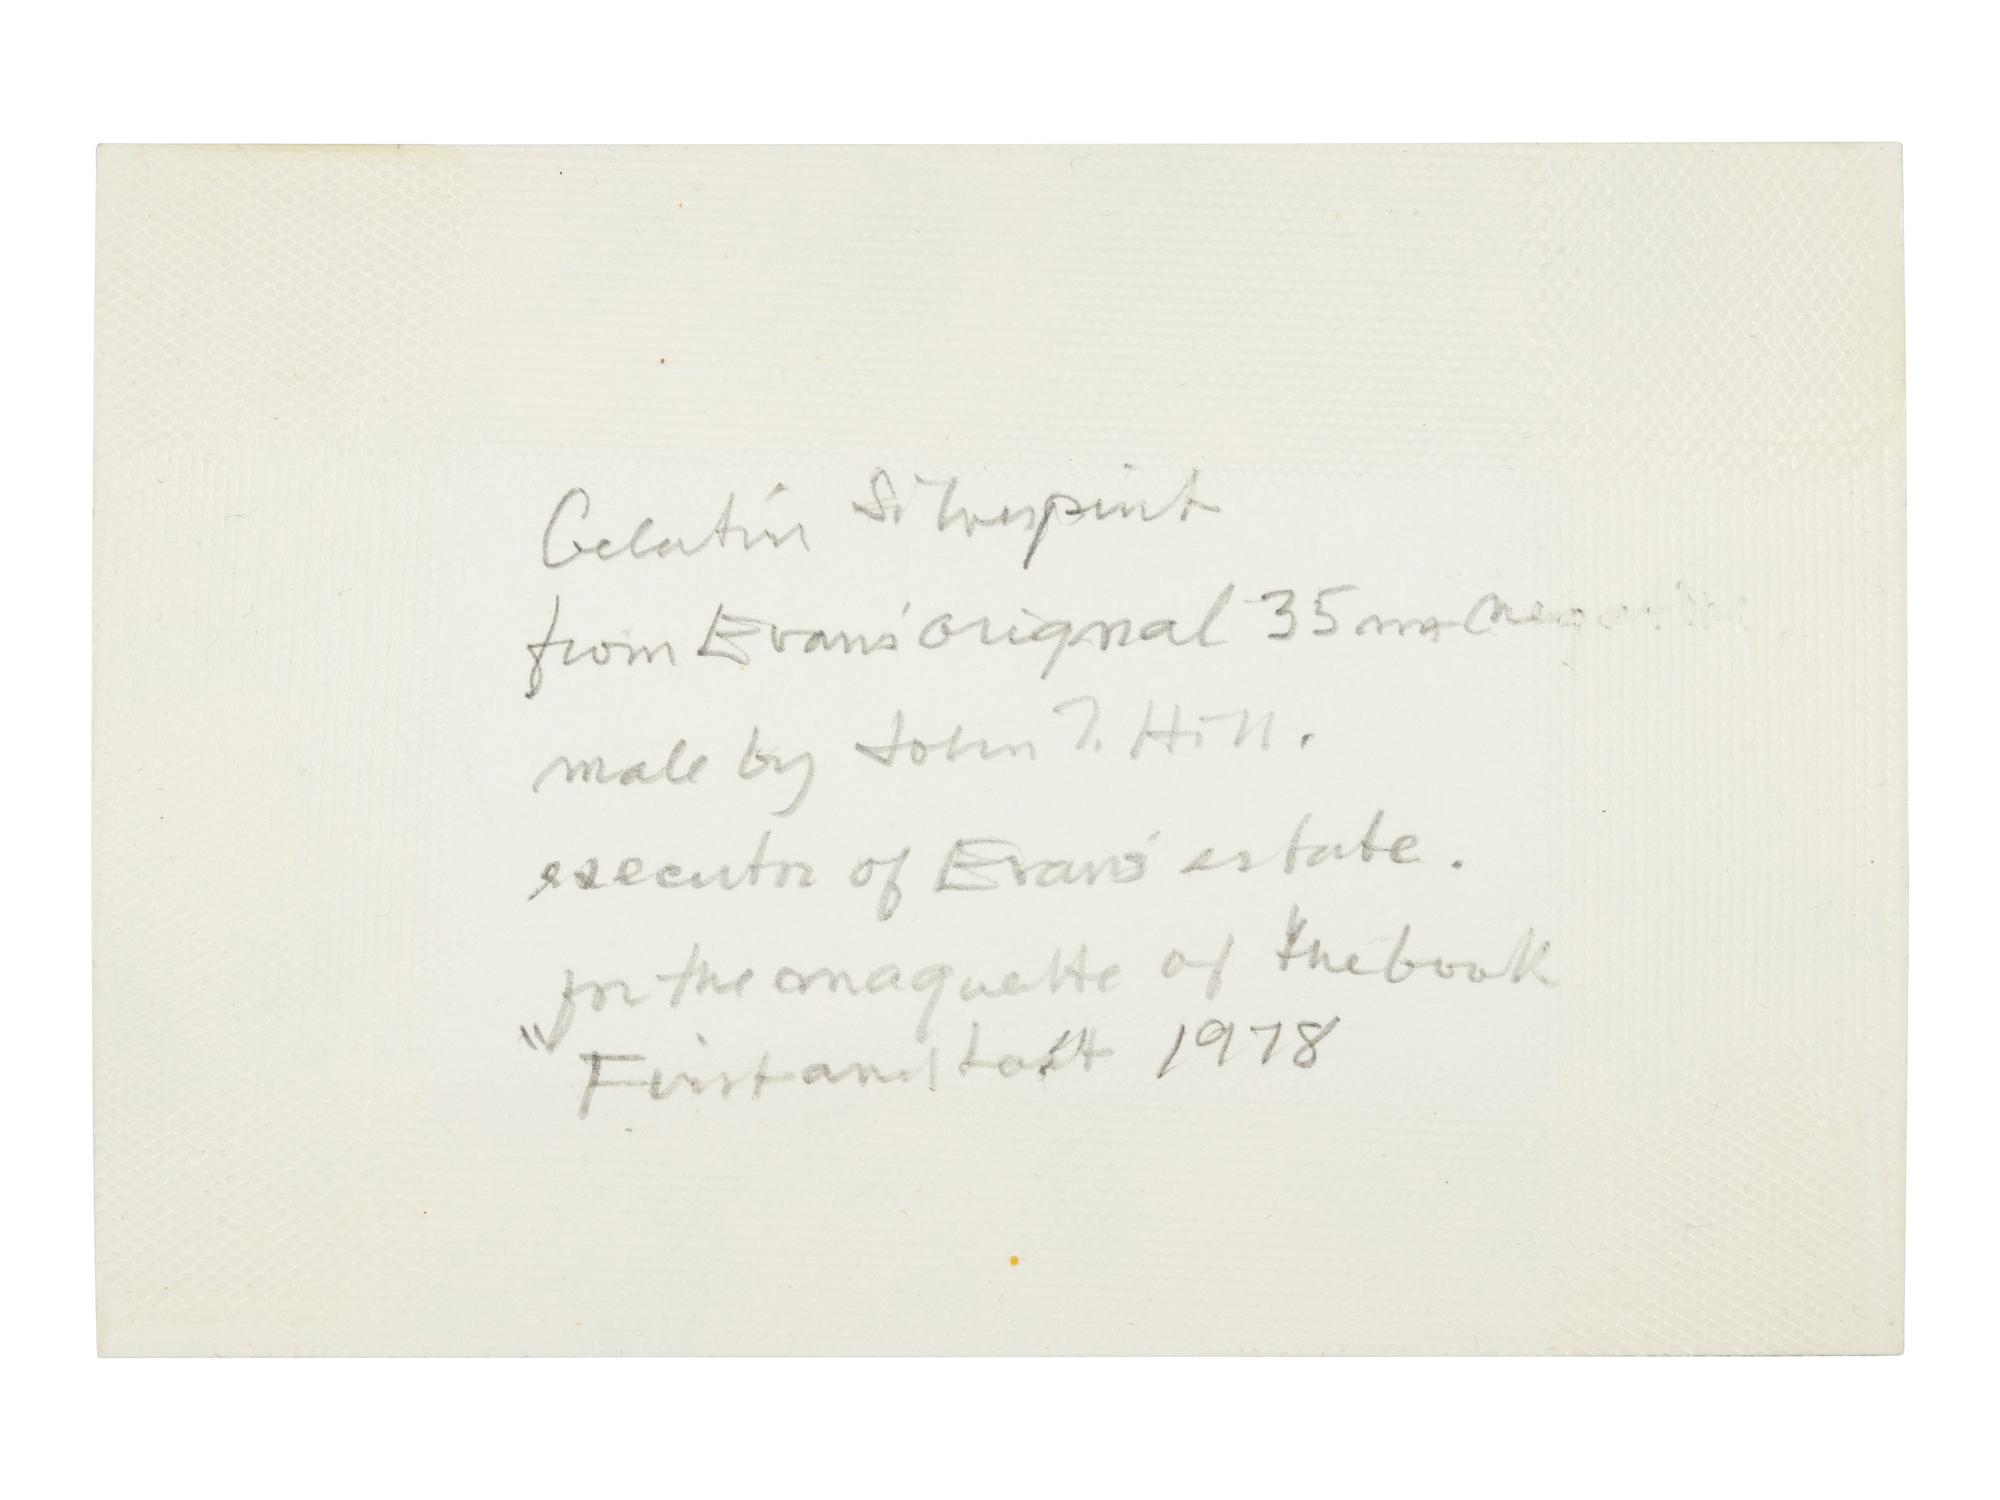 Gelatin Silverprint
from Evans' original 35mm negative
made by John T. Hill.
executor of Evans' estate.
for the maquette of the book
"First and Last 1978